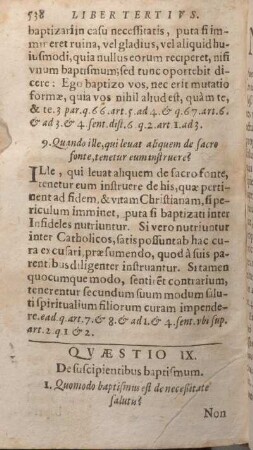 538 LIBER TERTIVS.
baptizari in casu necessitatis, puta si im-
mineret ruina, vel gladius, vel aliquid hu-
iusmodi, quia nullus eorum reciperet, nisi
vnum baptismum; sed tunc oportebit di-
cere: Ego baptizo vos, nec erit mutatio
formæ, quia vos nihil aliud est, quàm te,
& te. 3 par. q. 66. art. 5. ad 4. & q. 67. art. 6.
& ad 3. & 4. sent. dist. 6. q. 2. art 1. ad 3.
9. Quando ille, qui leuat aliquem de sacro
fonte, tenetur eum instruere?
ILle, qui leuat aliquem de sacro fonte,
tenetur eum instruere de his, quæ perti-
nent ad fidem, & vitam Christianam, si pe-
riculum imminet, puta si baptizati inter
Infideles nutriuntur. Si vero nutriuntur
inter Catholicos, satis possunt ab hac cu-
ra excusari, præsumendo, quod à suis pa-
rentibus diligenter instruantur. Si tamen
quocumque modo, sentirent contrarium,
tenerentur secundum suum modum salu-
ti spiritualium filiorum curam impende-
re. ead. q. art. 7. & 8. & ad 1. & 4. sent. vbi sup.
art. 2. q. 1 & 2.
QVÆSTIO IX.
De suscipientibus baptismum.
1. Quomodo baptismus est de necessitate
salutis?
Non